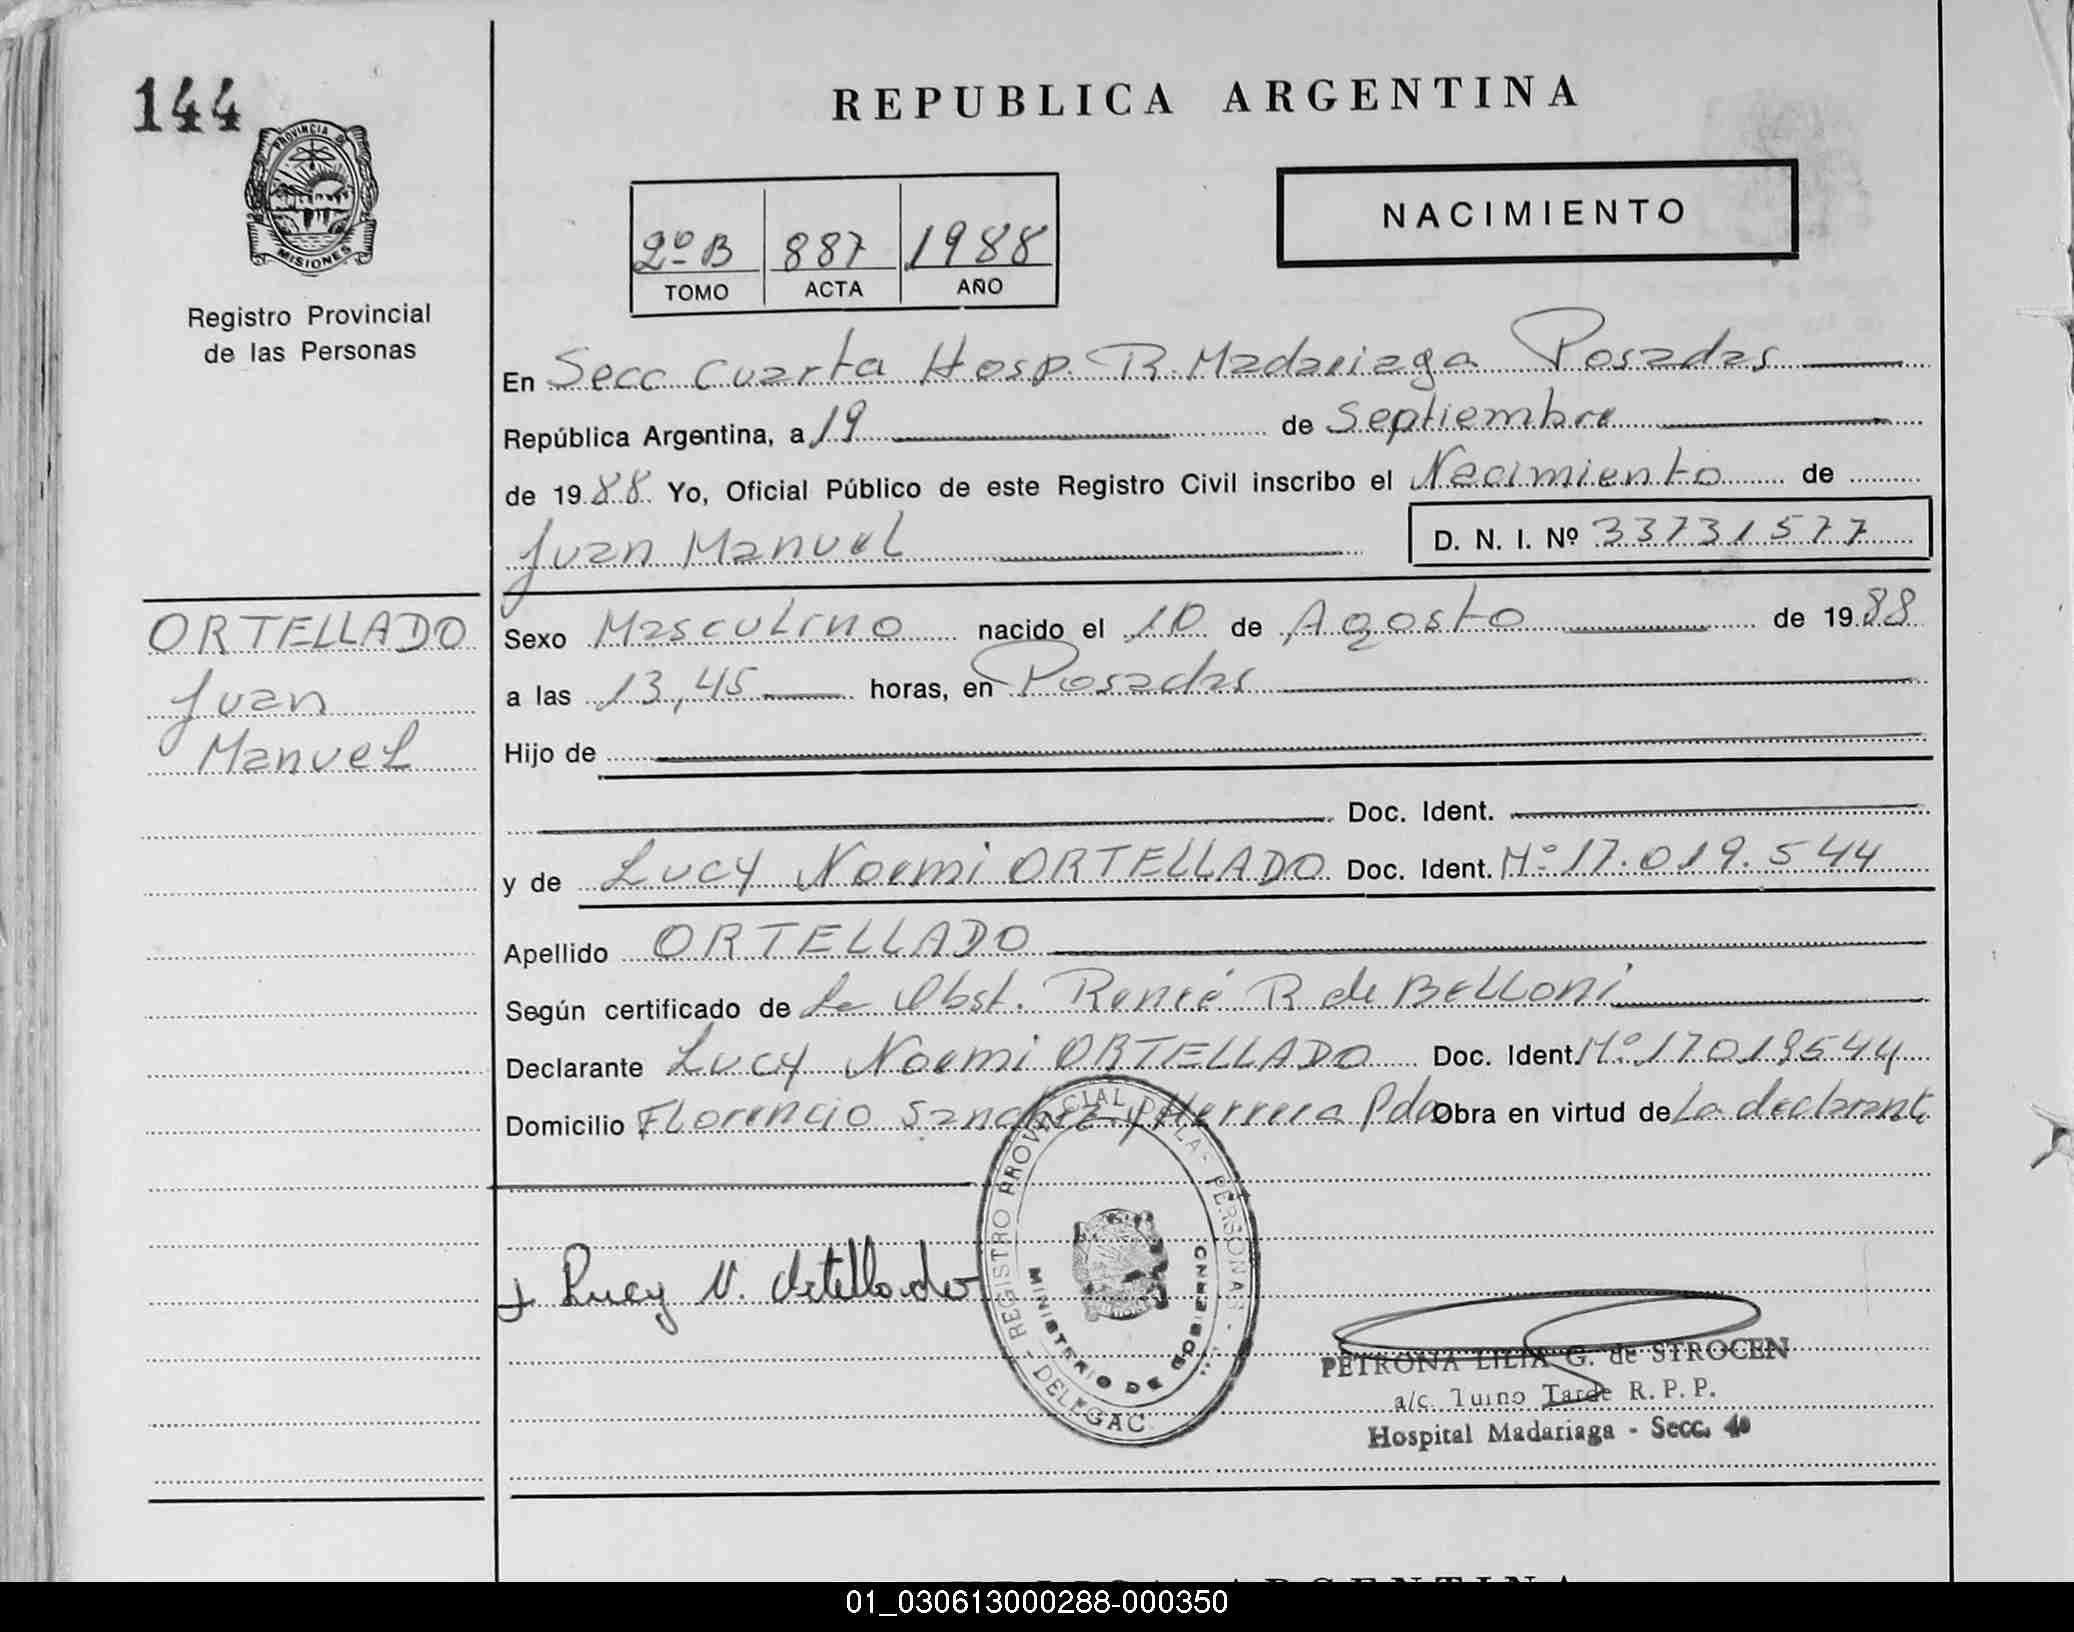 144
PROVINCIA DE
MISIONES
Registro Provincial
de las Personas
ORTELLADO
Juan
Manuel
REPUBLICA ARGENTINA
2º B 887 1988
TOMO ACTA AÑO
NACIMIENTO
En Secc Cuarta Hosp. R. Madariaga Posadas
República Argentina, a 19 de Septiembre
de 1988 Yo, Oficial Público de este Registro Civil inscribo el Nacimiento de
Juan Manuel D. N. I. Nº 33731577
Sexo Masculino nacido el 10 de Agosto de 1988
a las 13,45 horas, en Posadas
Hijo de
Doc. Ident.
y de Lucy Noemi ORTELLADO Doc. Ident. Mº 17.019.544
Apellido ORTELLADO
Según certificado de la Obst. Reneé R de Belloni
Declarante Lucy Noemi ORTELLADO Doc. Ident. Mº 17019544
Domicilio Florencio Sanchez y Herrera Pdas Obra en virtud de La declarante
REGISTRO PROVINCIAL DE LAS PERSONAS - DELEGAC.
MINISTERIO DE GOBIERNO
Lucy N. Ortellado
PETRONA LILIA G. de STROCEN
a/c. Turno Tarde R. P. P.
Hospital Madariaga - Secc. 4a
ARGENTINA
01_030613000288-000350